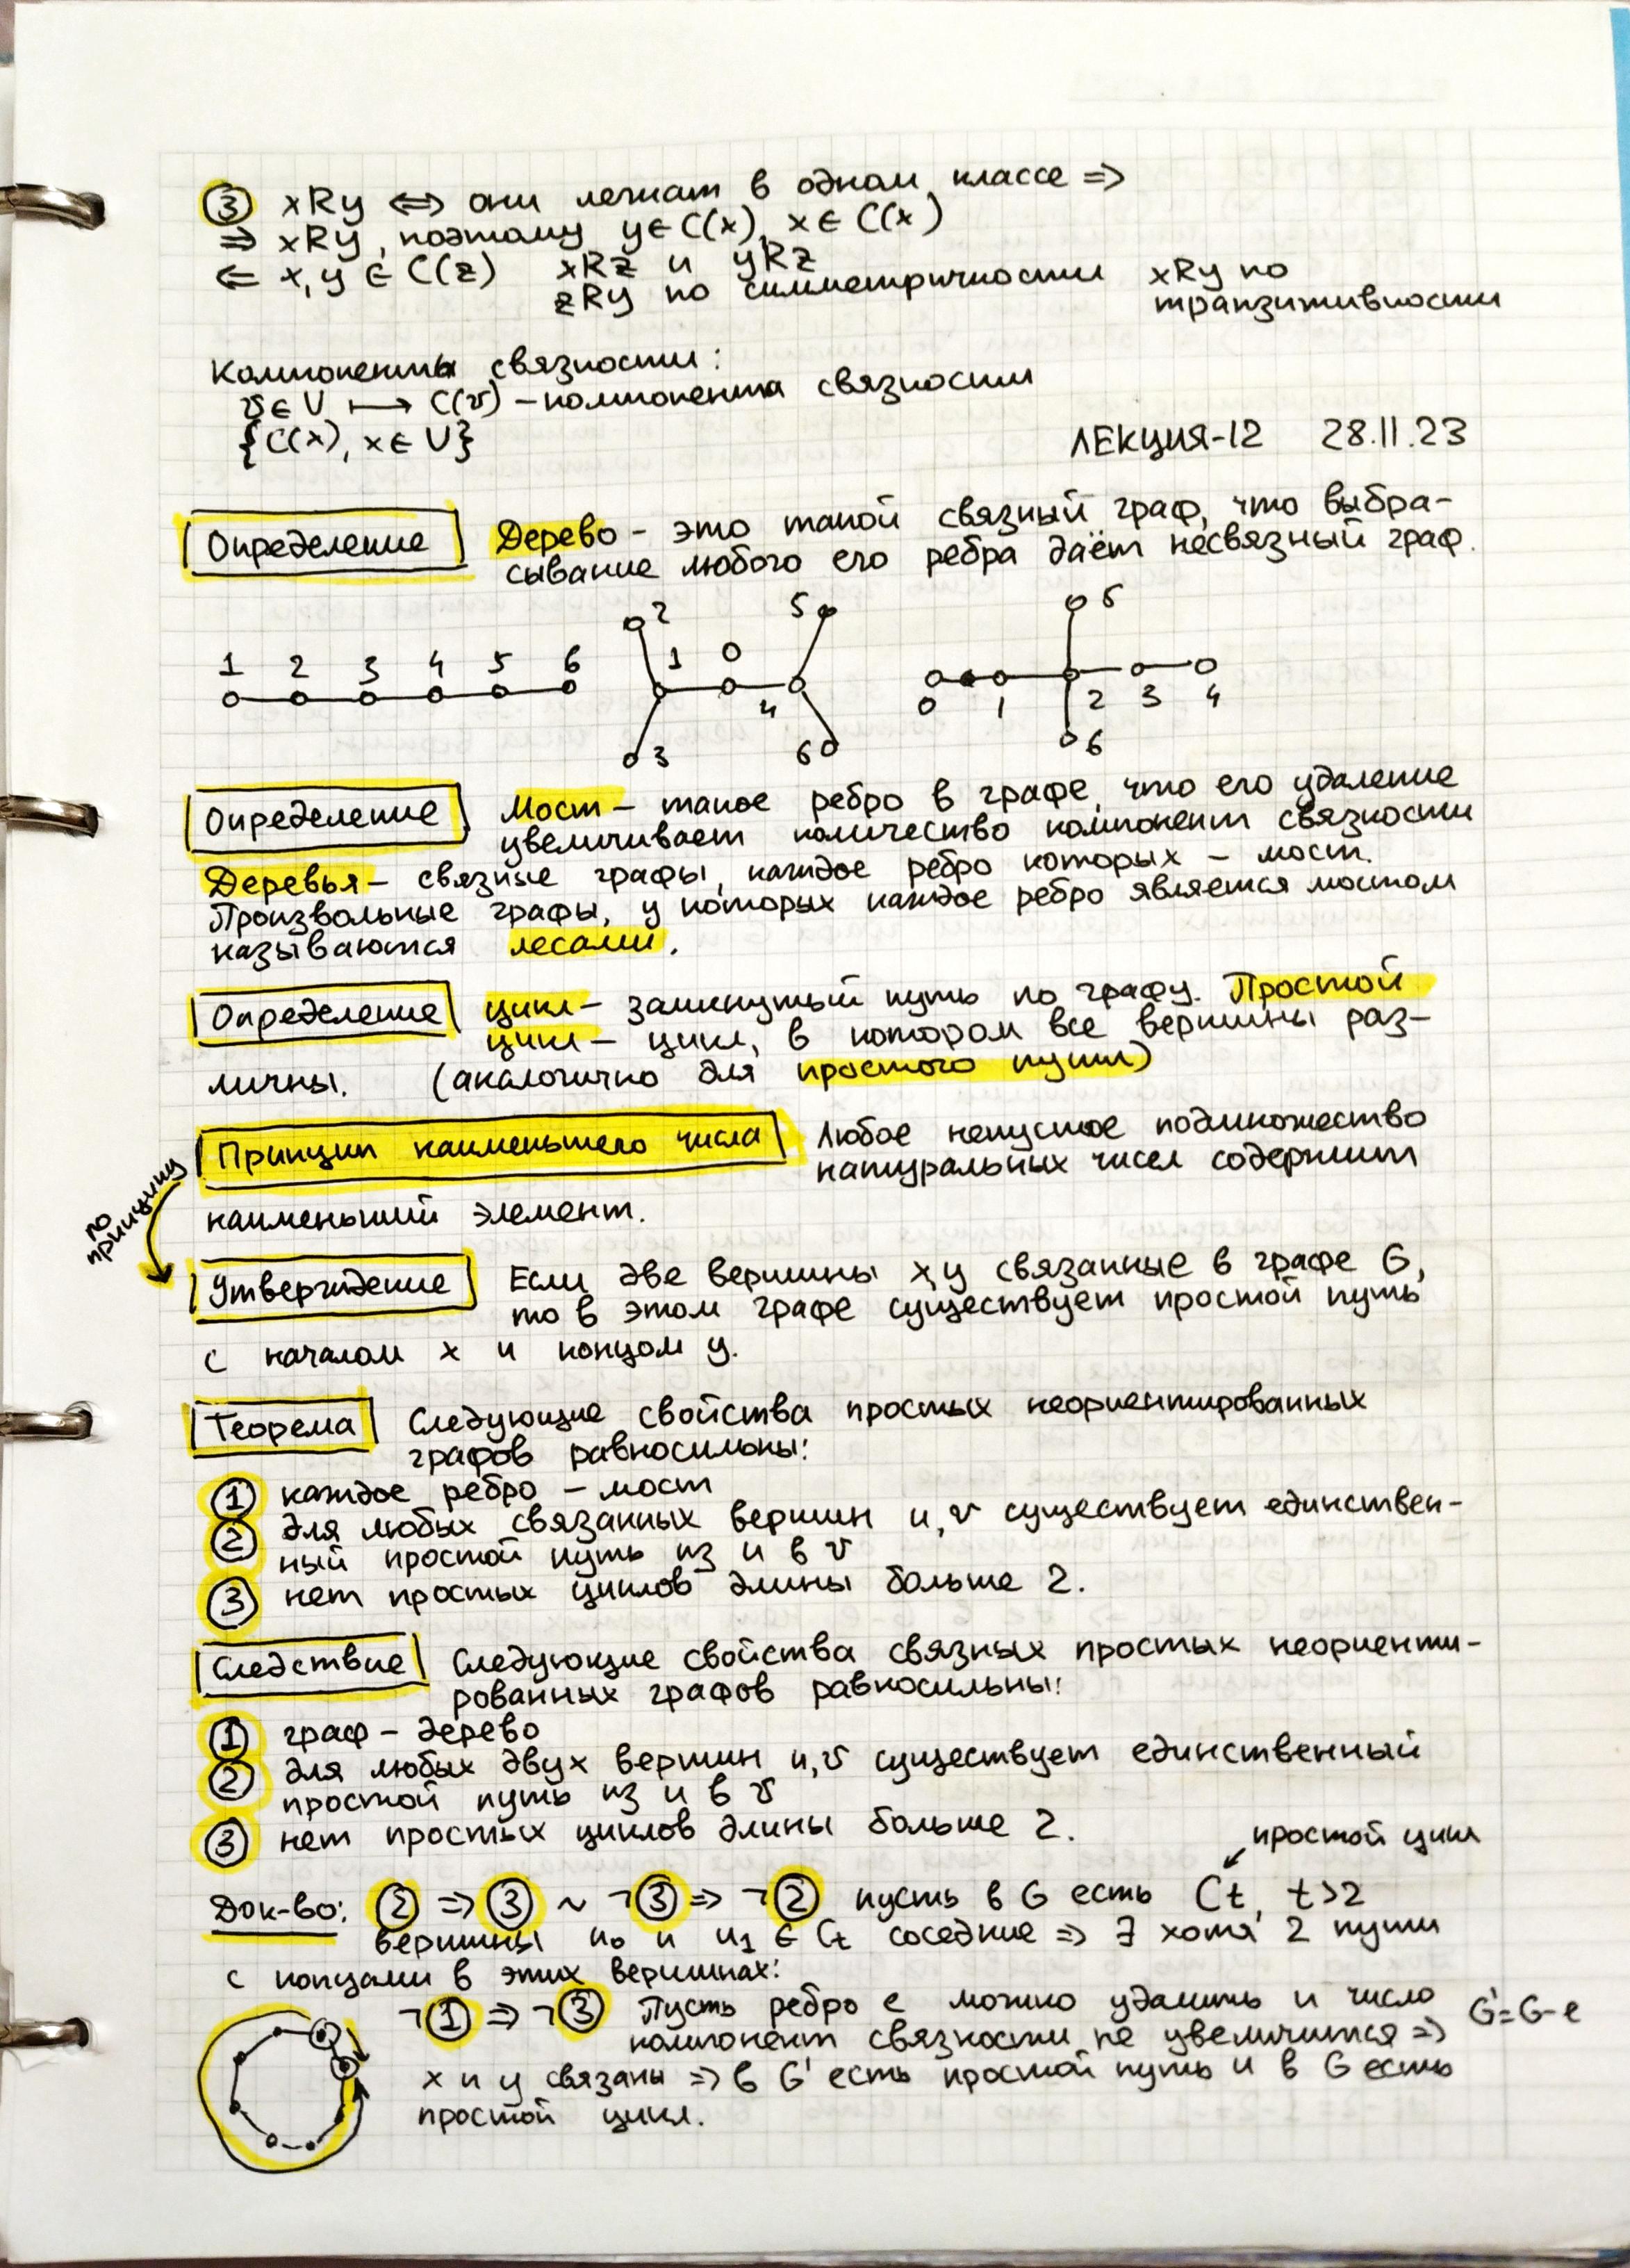 ③ xRy ⟺ они лежат в одном классе ⇒
⇒ xRy, поэтому y∈C(x), x∈C(x)
⇐ x,y∈C(z) xRz и yRz
zRy по симметричности xRy по
транзитивности
Компоненты связности:
v∈V ⟼ C(v) – компонента связности
{C(x), x∈V}
ЛЕКЦИЯ-12 28.11.23
Определение Дерево – это такой связный граф, что выбра-
сывание любого его ребра даёт несвязный граф.
1 2 3 4 5 6
2 1 0 5 4 3 6
5 0 1 2 3 4 6
Определение Мост – такое ребро в графе, что его удаление
увеличивает количество компонент связности
Деревья – связные графы, каждое ребро которых – мост.
Произвольные графы, у которых каждое ребро является мостом
называются лесами.
Определение цикл – замкнутый путь по графу. Простой
цикл – цикл, в котором все вершины раз-
личны. (аналогично для простого пути)
Принцип наименьшего числа Любое непустое подмножество
натуральных чисел содержит
наименьший элемент.
по
принципу
Утверждение Если две вершины x,y связанные в графе G,
то в этом графе существует простой путь
с началом x и концом y.
Теорема Следующие свойства простых неориентированных
графов равносильны:
① каждое ребро – мост
② для любых связанных вершин u,v существует единствен-
ный простой путь из u в v
③ нет простых циклов длины больше 2.
Следствие Следующие свойства связных простых неориенти-
рованных графов равносильны:
① граф – дерево
② для любых двух вершин u,v существует единственный
простой путь из u в v
③ нет простых циклов длины больше 2.
простой цикл
Док-во: ② ⇒ ③ ~ ¬③ ⇒ ¬② пусть в G есть Ct, t>2
вершины u₀ и u₁ ∈ Ct соседние ⇒ ∃ хотя 2 пути
с концами в этих вершинах:
¬① ⇒ ¬③ Пусть ребро e можно удалить и число
компонент связности не увеличится ⇒ G'=G-e
x и y связаны ⇒ в G' есть простой путь и в G есть
простой цикл.